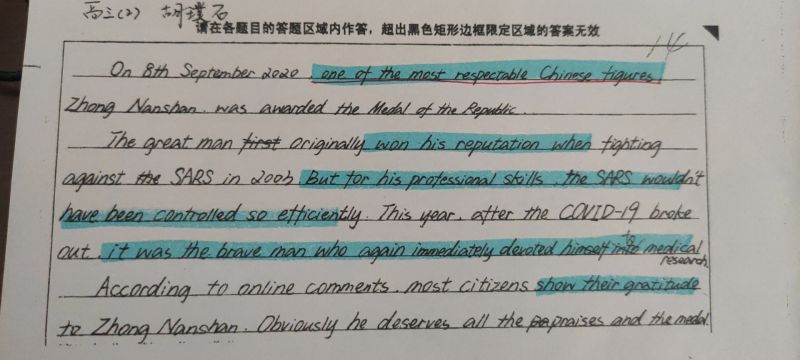 高三(2) 胡璞石
请在各题目的答题区域内作答，超出黑色矩形边框限定区域的答案无效
14
On 8th September 2020, one of the most respectable Chinese figures,
Zhong Nanshan, was awarded the Medal of the Republic.
The great man first originally won his reputation when fighting
against the SARS in 2003. But for his professional skills, the SARS wouldn't
have been controlled so efficiently. This year, after the COVID-19 broke
out, it was the brave man who again immediately devoted himself into to medical research.
According to online comments, most citizens show their gratitude
to Zhong Nanshan. Obviously he deserves all the praises and the medal.